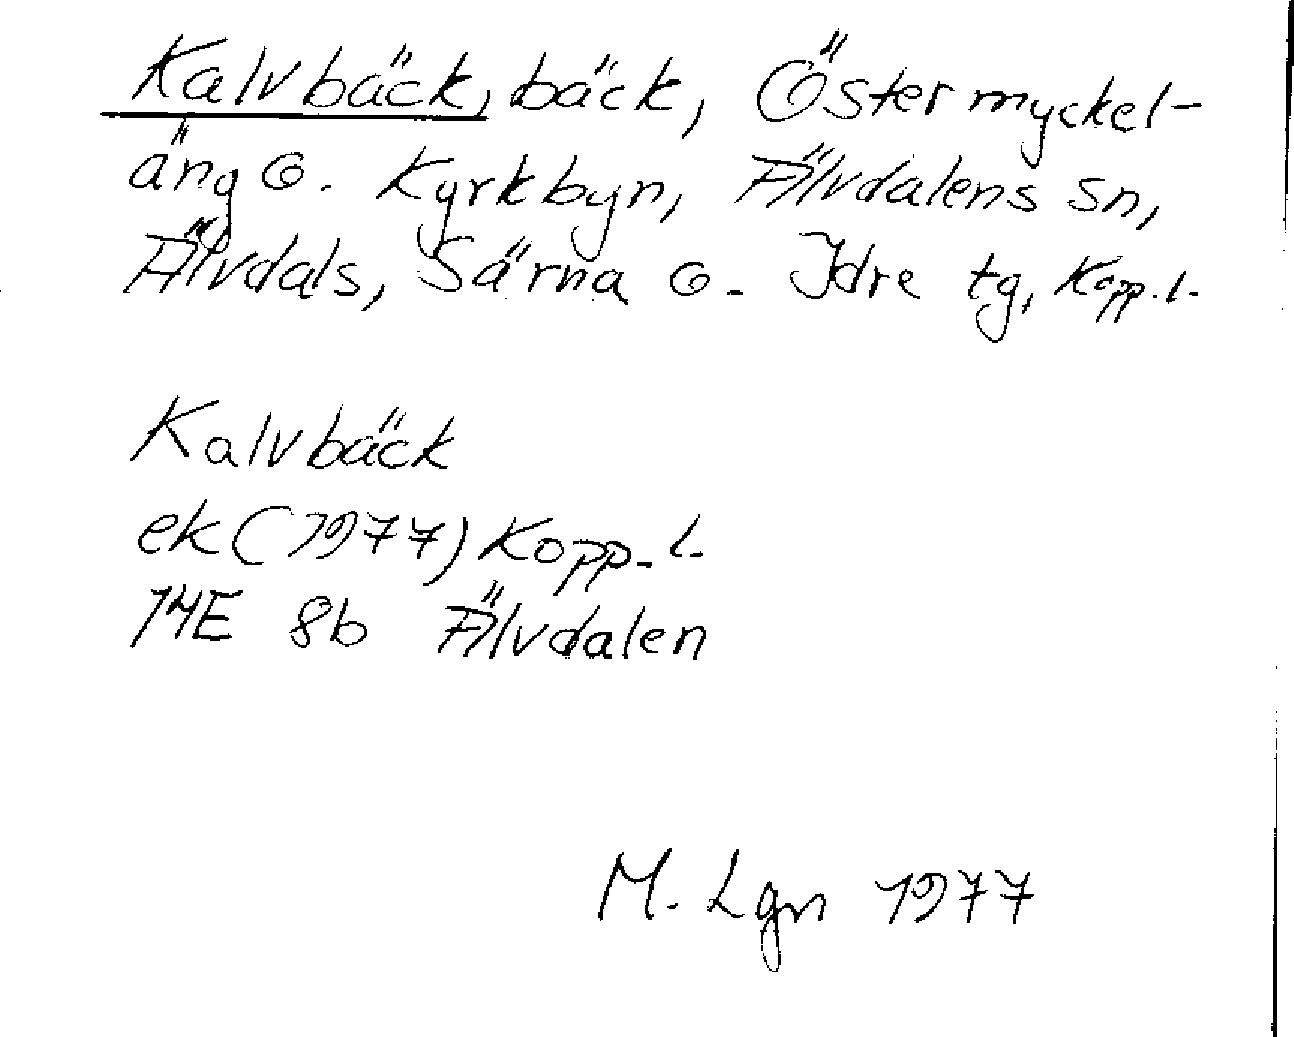 Kalvbäck, bäck, Östermyckel-
äng o. Kyrkbyn, Älvdalens sn,
Älvdals, Särna o. Idre tg, Kopp. l.
Kalvbäck
ek (1977) Kopp. l.
14E 8b Älvdalen
M. Lgn 1977